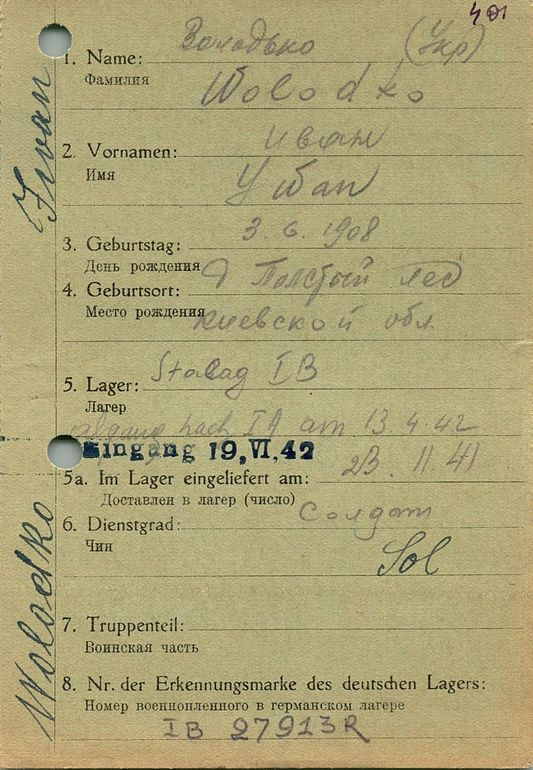 401
Володько (Укр)
1. Name:
Фамилия
Wolodko
2. Vornamen: иван
Имя
Iwan
3. Geburtstag: 3. 6. 1908
День рождения
4. Geburtsort: д Толстый лес
Место рождения киевской обл.
5. Lager: Stalag IB
Лагер
abgang nach IA am 13.4.42
Eingang 19,VI,42
5a. Im Lager eingeliefert am: 23. 11. 41
Доставлен в лагер (число)
6. Dienstgrad: Солдат
Чин
Sol
7. Truppenteil:
Воинская часть
8. Nr. der Erkennungsmarke des deutschen Lagers:
Номер военнопленного в германском лагере
IB 27913R
Wolodko Iwan